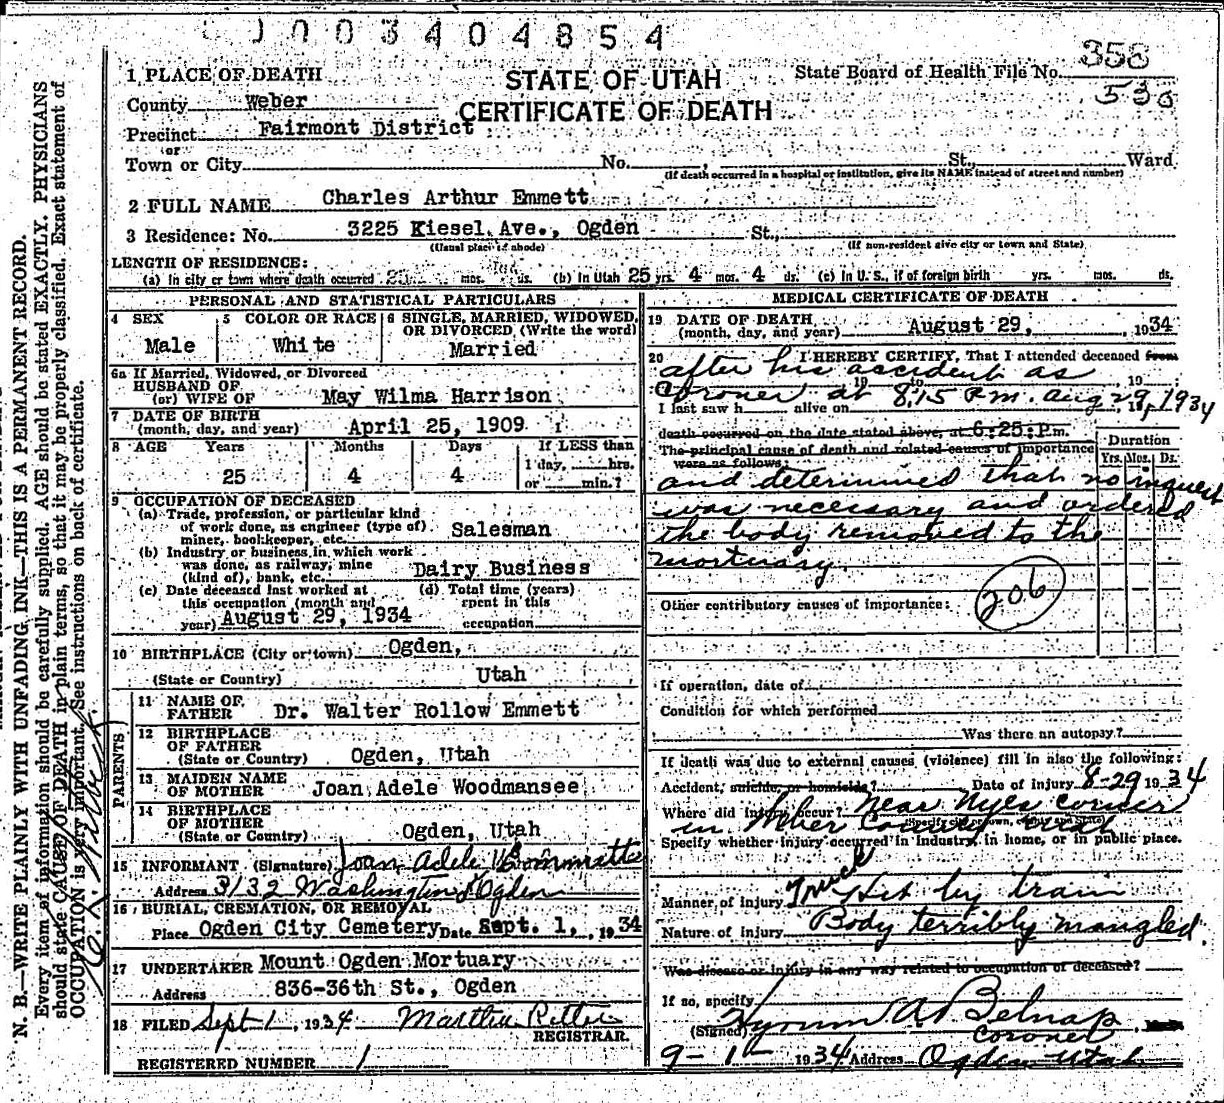 1003404854
1 PLACE OF DEATH
STATE OF UTAH
CERTIFICATE OF DEATH
State Board of Health File No. 358
530
County Weber
Precinct Fairmont District
or
Town or City No. , St., Ward
(If death occurred in a hospital or institution, give its NAME instead of street and number)
2 FULL NAME Charles Arthur Emmett
3 Residence: No. 3225 Kiesel Ave., Ogden St.,
(Usual place of abode) (If non-resident give city or town and State)
LENGTH OF RESIDENCE:
(a) In city or town where death occurred 25 mos. ds. (b) In Utah 25 yrs. 4 mos. 4 ds. (c) In U. S., if of foreign birth yrs. mos. ds.
PERSONAL AND STATISTICAL PARTICULARS
4 SEX
Male
5 COLOR OR RACE
White
6 SINGLE, MARRIED, WIDOWED,
OR DIVORCED (Write the word)
Married
6a If Married, Widowed, or Divorced
HUSBAND OF
(or) WIFE OF May Wilma Harrison
7 DATE OF BIRTH
(month, day, and year) April 25, 1909
8 AGE Years Months Days If LESS than
1 day, hrs.
25 4 4 or min.?
9 OCCUPATION OF DECEASED
(a) Trade, profession, or particular kind
of work done, as engineer (type of)
miner, bookkeeper, etc. Salesman
(b) Industry or business in which work
was done, as railway, mine
(kind of), bank, etc. Dairy Business
(c) Date deceased last worked at
this occupation (month and
year) August 29, 1934
(d) Total time (years)
spent in this
occupation
10 BIRTHPLACE (City or town) Ogden,
(State or Country) Utah
PARENTS
11 NAME OF
FATHER Dr. Walter Rollow Emmett
12 BIRTHPLACE
OF FATHER
(State or Country) Ogden, Utah
13 MAIDEN NAME
OF MOTHER Joan Adele Woodmansee
14 BIRTHPLACE
OF MOTHER
(State or Country) Ogden, Utah
15 INFORMANT (Signature) Joan Adele
Address 3132 Washington Ogden
16 BURIAL, CREMATION, OR REMOVAL
Place Ogden City Cemetery Date Sept. 1, 1934
17 UNDERTAKER Mount Ogden Mortuary
Address 836-36th St., Ogden
18 FILED Sept 1, 1934 Martha
REGISTRAR.
REGISTERED NUMBER 1
MEDICAL CERTIFICATE OF DEATH
19 DATE OF DEATH
(month, day, and year) August 29, , 1934
20 I HEREBY CERTIFY, That I attended deceased from
after his accident as
, 19 to , 19 ;
Coroner at 8:15 P.M. Aug 29, 1934
I last saw h alive on , 19
death occurred on the date stated above, at 6:25:P m.
The principal cause of death and related causes of importance
were as follows:
Duration
Yrs. Mos. Ds.
and determined that no inquest
was necessary and ordered
the body removed to the
mortuary.
Other contributory causes of importance:
206
If operation, date of
Condition for which performed
Was there an autopsy?
If death was due to external causes (violence) fill in also the following:
Accident, suicide, or homicide? Date of injury 8-29 1934
Where did injury occur? near Nyes corner
(Specify city or town, county and State)
in Weber County Utah
Specify whether injury occurred in industry, in home, or in public place.
Manner of injury Truck Hit by train
Nature of injury Body terribly mangled.
Was disease or injury in any way related to occupation of deceased?
If so, specify
(Signed) A Belnap
Coroner
9-1 1934 Address Ogden Utah
N. B.—WRITE PLAINLY WITH UNFADING INK—THIS IS A PERMANENT RECORD.
Every item of information should be carefully supplied. AGE should be stated EXACTLY. PHYSICIANS
should state CAUSE OF DEATH in plain terms, so that it may be properly classified. Exact statement of
OCCUPATION is very important. See instructions on back of certificate.